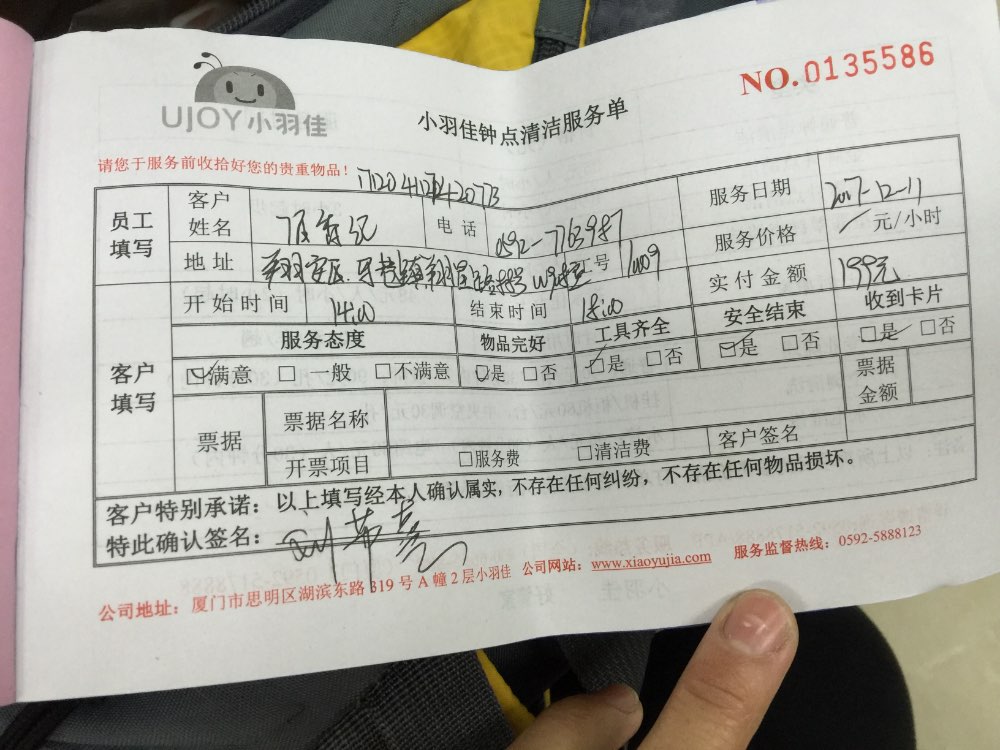 UJOY小羽佳
NO.0135586
小羽佳钟点清洁服务单
请您于服务前收拾好您的贵重物品！
员工填写
客户姓名
电话 0592-7763987
服务日期 2017-12-11
地址
工号 1009
服务价格 元/小时
实付金额 199元
开始时间 14:00
结束时间 18:00
客户填写
服务态度 物品完好 工具齐全 安全结束 收到卡片
☑满意 □一般 □不满意 ☑是 □否 ☑是 □否 ☑是 □否 ☑是 □否
票据
票据名称
票据金额
开票项目 □服务费 □清洁费 客户签名
客户特别承诺：以上填写经本人确认属实，不存在任何纠纷，不存在任何物品损坏。
特此确认签名：
公司地址：厦门市思明区湖滨东路319号A幢2层小羽佳 公司网站：www.xiaoyujia.com 服务监督热线：0592-5888123